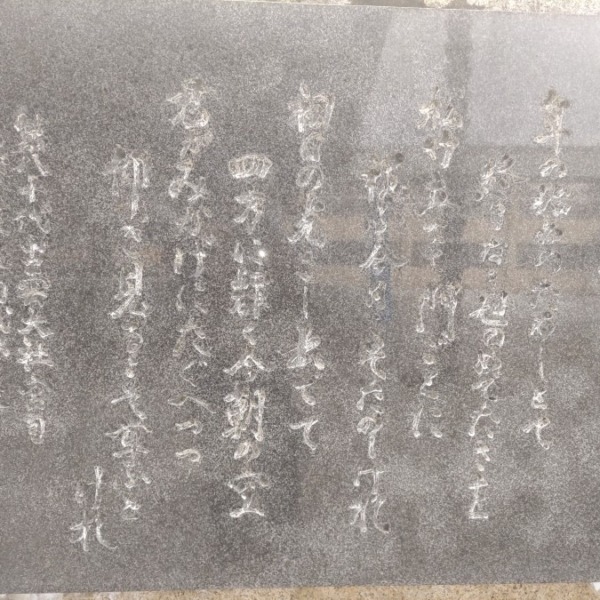 年の始めのためしとて
終り なき世のめでたさを
松竹たてて門ことに
祝ふ今日こそたのしけれ
初日の光さし出てて
四方に輝く今朝の空
君かみかけにたくへつつ
仰き見るこそ尊と
けれ
第八十代出雲大社宮司